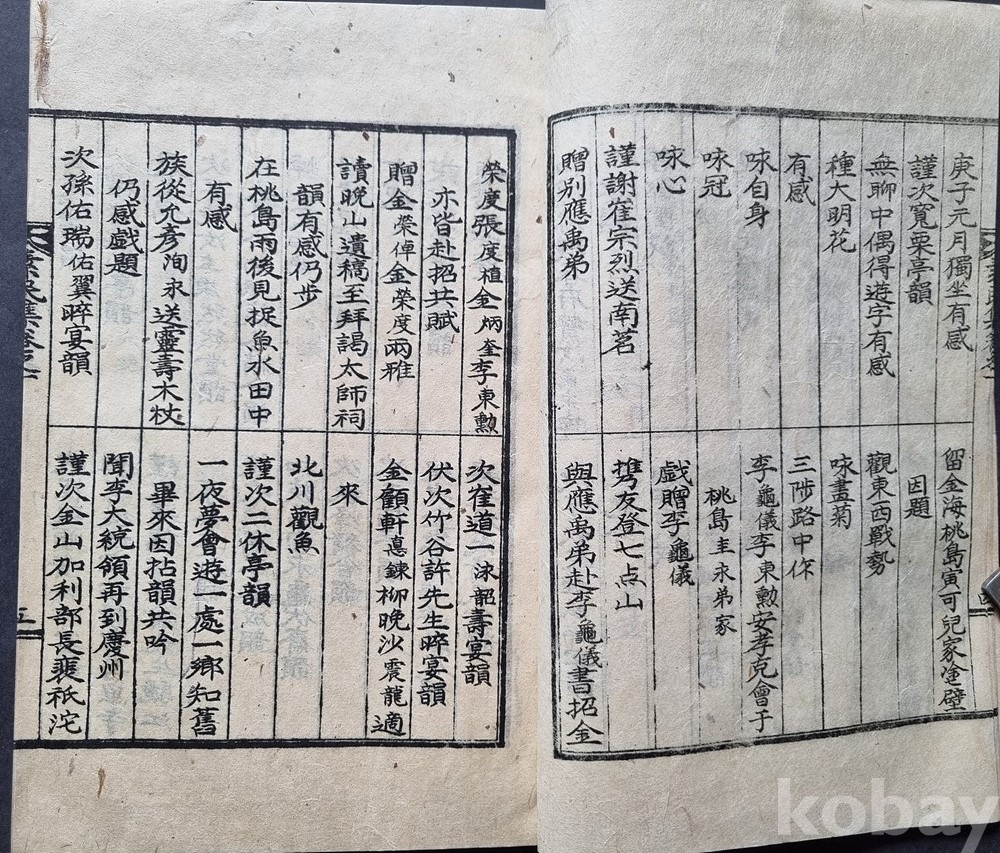 庚子元月獨坐有感
謹次寬栗亭韻
無聊中偶得遊字有感
種大明花
有感
咏自身
咏冠
咏心
謹謝崔宗烈送南茗
贈別應禹弟
留金海桃島寅可兒家塗壁
因題
觀東西戰勢
咏盡菊
三陟路中作
李龜儀李東勳安孝克會于
桃島主永弟家
戱贈李龜儀
携友登七点山
與應禹弟赴李龜儀書招金
榮度張度植金炳奎李東勳
亦皆赴招共賦
贈金榮倬金榮度兩雅
讀晩山遺稿至拜謁太師祠
韻有感仍步
在桃島雨後見捉魚水田中
有感
族從允彦洵永送靈壽木杖
仍感戱題
次孫佑瑞佑翼晬宴韻
次崔道一浗韶壽宴韻
伏次竹谷許先生晬宴韻
金顧軒憙鍊柳晩沙震龍適
來
北川觀魚
謹次二休亭韻
一夜夢會遊一處一鄕知舊
畢來因拈韻共吟
聞李大統領再到慶州
謹次金山加利部長裵祇沱
五
kobay